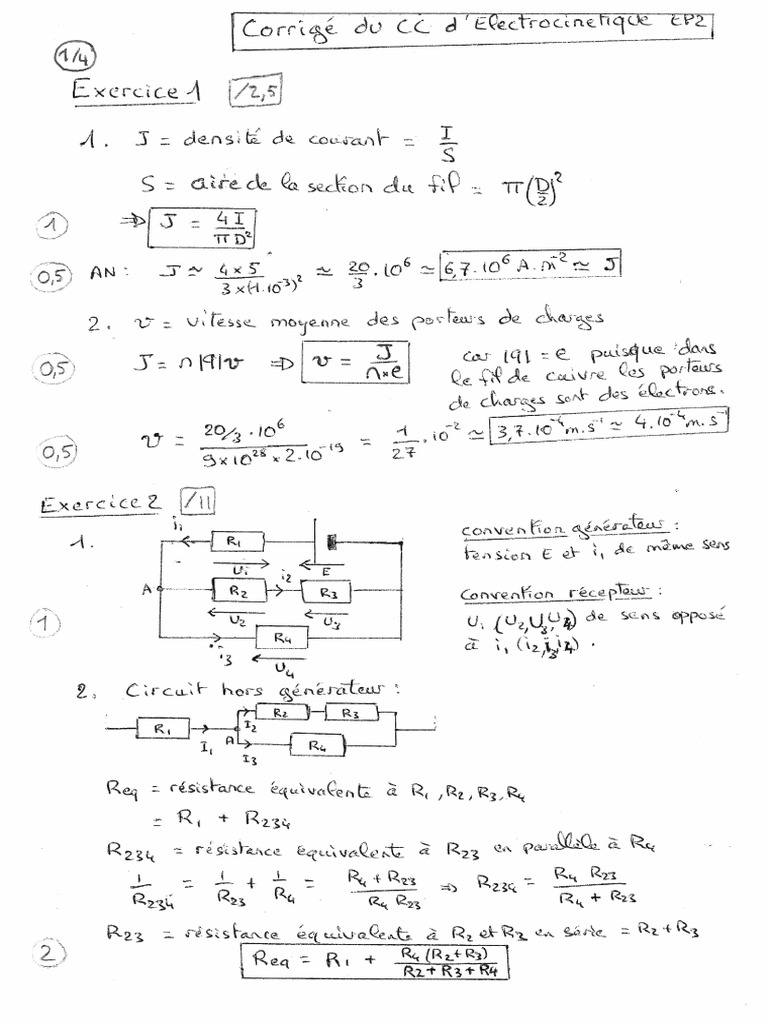 Corrigé du CC d'Electrocinétique EP2
1/4
Exercice 1 /2,5
1. J = densité de courant = I/S
S = aire de la section du fil = π(D/2)²
1 ⇒ J = 4I/πD²
0,5 AN : J ≃ 4×5/3×(1.10⁻³)² ≃ 20/3 . 10⁶ ≃ 6,7.10⁶ A.m⁻² ≃ J
2. v = vitesse moyenne des porteurs de charges
0,5 J = n|q|v ⇒ v = J/n×e car |q| = e puisque dans
le fil de cuivre les porteurs
de charges sont des électrons.
0,5 v = 20/3 . 10⁶/9×10²⁸×2.10⁻¹⁹ = 1/27 . 10⁻² ≃ 3,7.10⁻⁴ m.s⁻¹ ≃ 4.10⁻⁴ m.s⁻¹
Exercice 2 /11
1.
i₁ R₁
U₁ i₂ E
A R₂ R₃
U₂ U₃
1
R₄
i₃ U₄
convention générateur :
tension E et i₁ de même sens
convention récepteur :
U₁ (U₂,U₃,U₄) de sens opposé
à i₁ (i₂, i₃) .
2. Circuit hors générateur :
R₂ R₃
R₁ I₂
I₁ A R₄
I₃
Req = résistance équivalente à R₁, R₂, R₃, R₄
= R₁ + R₂₃₄
R₂₃₄ = résistance équivalente à R₂₃ en parallèle à R₄
1/R₂₃₄ = 1/R₂₃ + 1/R₄ = R₄ + R₂₃/R₄ R₂₃ ⇒ R₂₃₄ = R₄ R₂₃/R₄ + R₂₃
R₂₃ = résistance équivalente à R₂ et R₃ en série = R₂ + R₃
2 Req = R₁ + R₄(R₂+R₃)/R₂+R₃+R₄